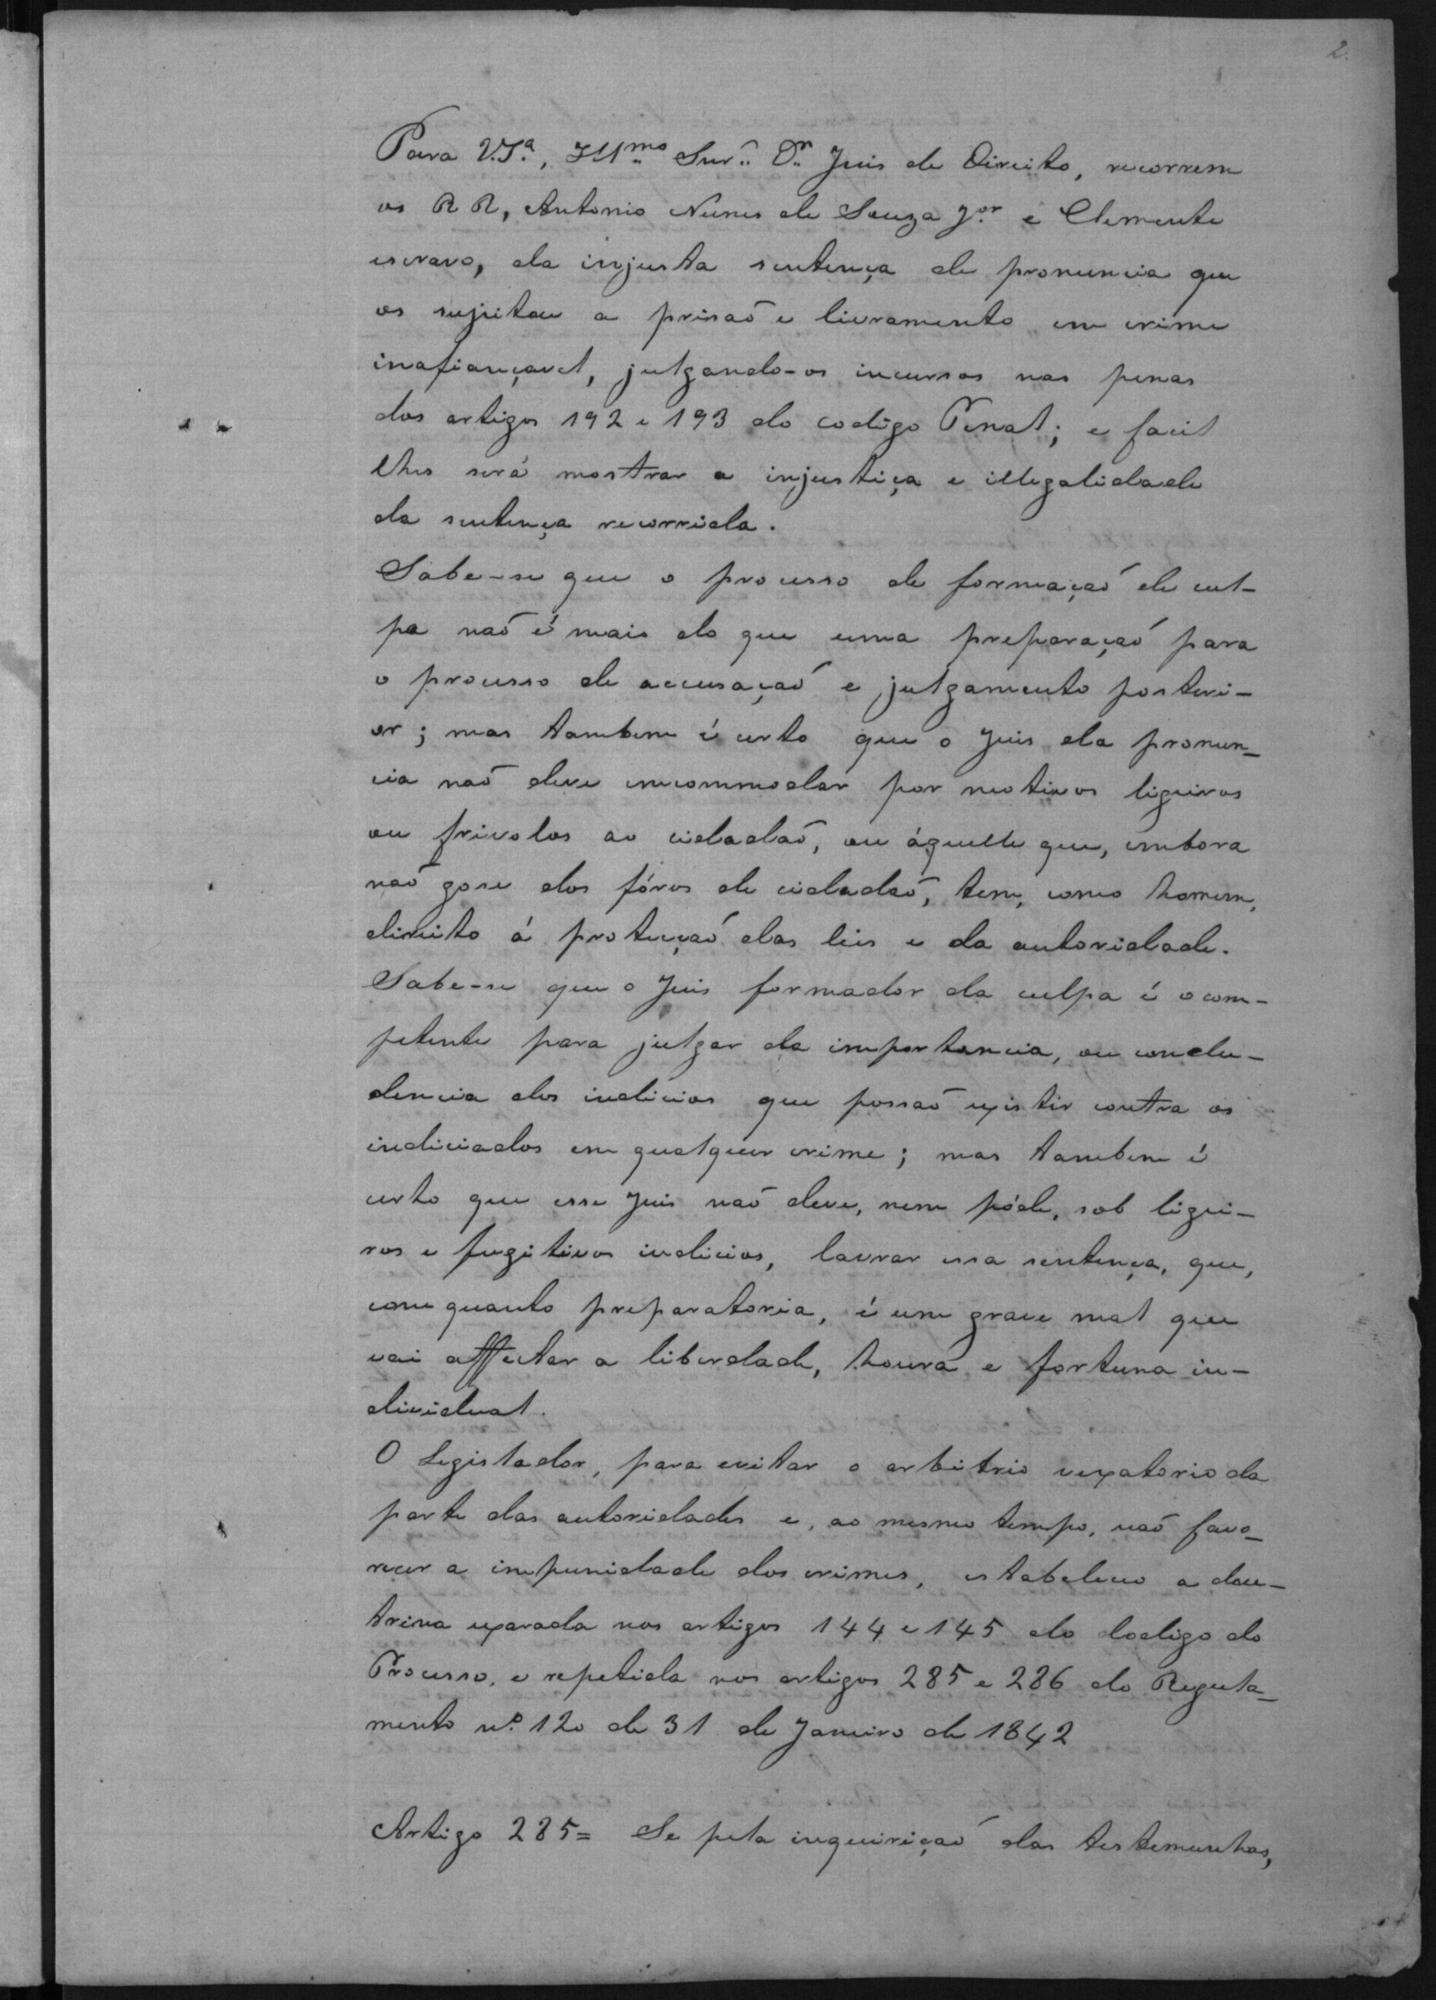 2.
Para V.Sª, Illmo Snr. Dr. Juis de Direito, recorrem
os RR, Antonio Nunes de Souza Jor e Clemente
escravo, da injusta sentença de pronuncia que
os sujeitou a prisaõ e livramento em crime
inafiançavel, julgando-os incursos nas penas
dos artigos 192 e 193 do codigo Penal; e facil
lhes será mostrar a injustiça e illegalidade
da sentença recorrida.
Sabe-se que o processo de formaçaõ de cul-
pa naõ é mais do que uma preparaçaõ para
o processo de accusaçaõ e julgamento posteri-
or; mas tambem é certo que o Juis da pronun-
cia naõ deve encommodar por motivos ligeiros
ou frivolos ao cidadaõ, ou áquelle que, embora
naõ gose dos fóros de cidadaõ, tem, como homem,
direito á protecçaõ das leis e da autoridade.
Sabe-se que o Juis formador da culpa é o com-
petente para julgar da importancia, ou conclu-
dencia dos indicios que possaõ existir contra os
indiciados em qualquer crime; mas tambem é
certo que esse Juis naõ deve, nem póde, sob ligei-
ros e fugitivos indicios, lavrar essa sentença, que,
com quanto preparatoria, é um grave mal que
vai affectar a liberdade, honra e fortuna in-
dividual.
O Legislador, para evitar o arbitrio vexatorio da
parte das autoridades e, ao mesmo tempo, naõ favo-
recer a impunidade dos crimes, estabeleceo a dou-
trina exarada nos artigos 144 e 145 do Codigo do
Processo, e repetida nos artigos 285 e 286 do Regula-
mento nº 120 de 31 de Janeiro de 1842
Artigo 285 = Se pela inquiriçaõ das testemunhas,